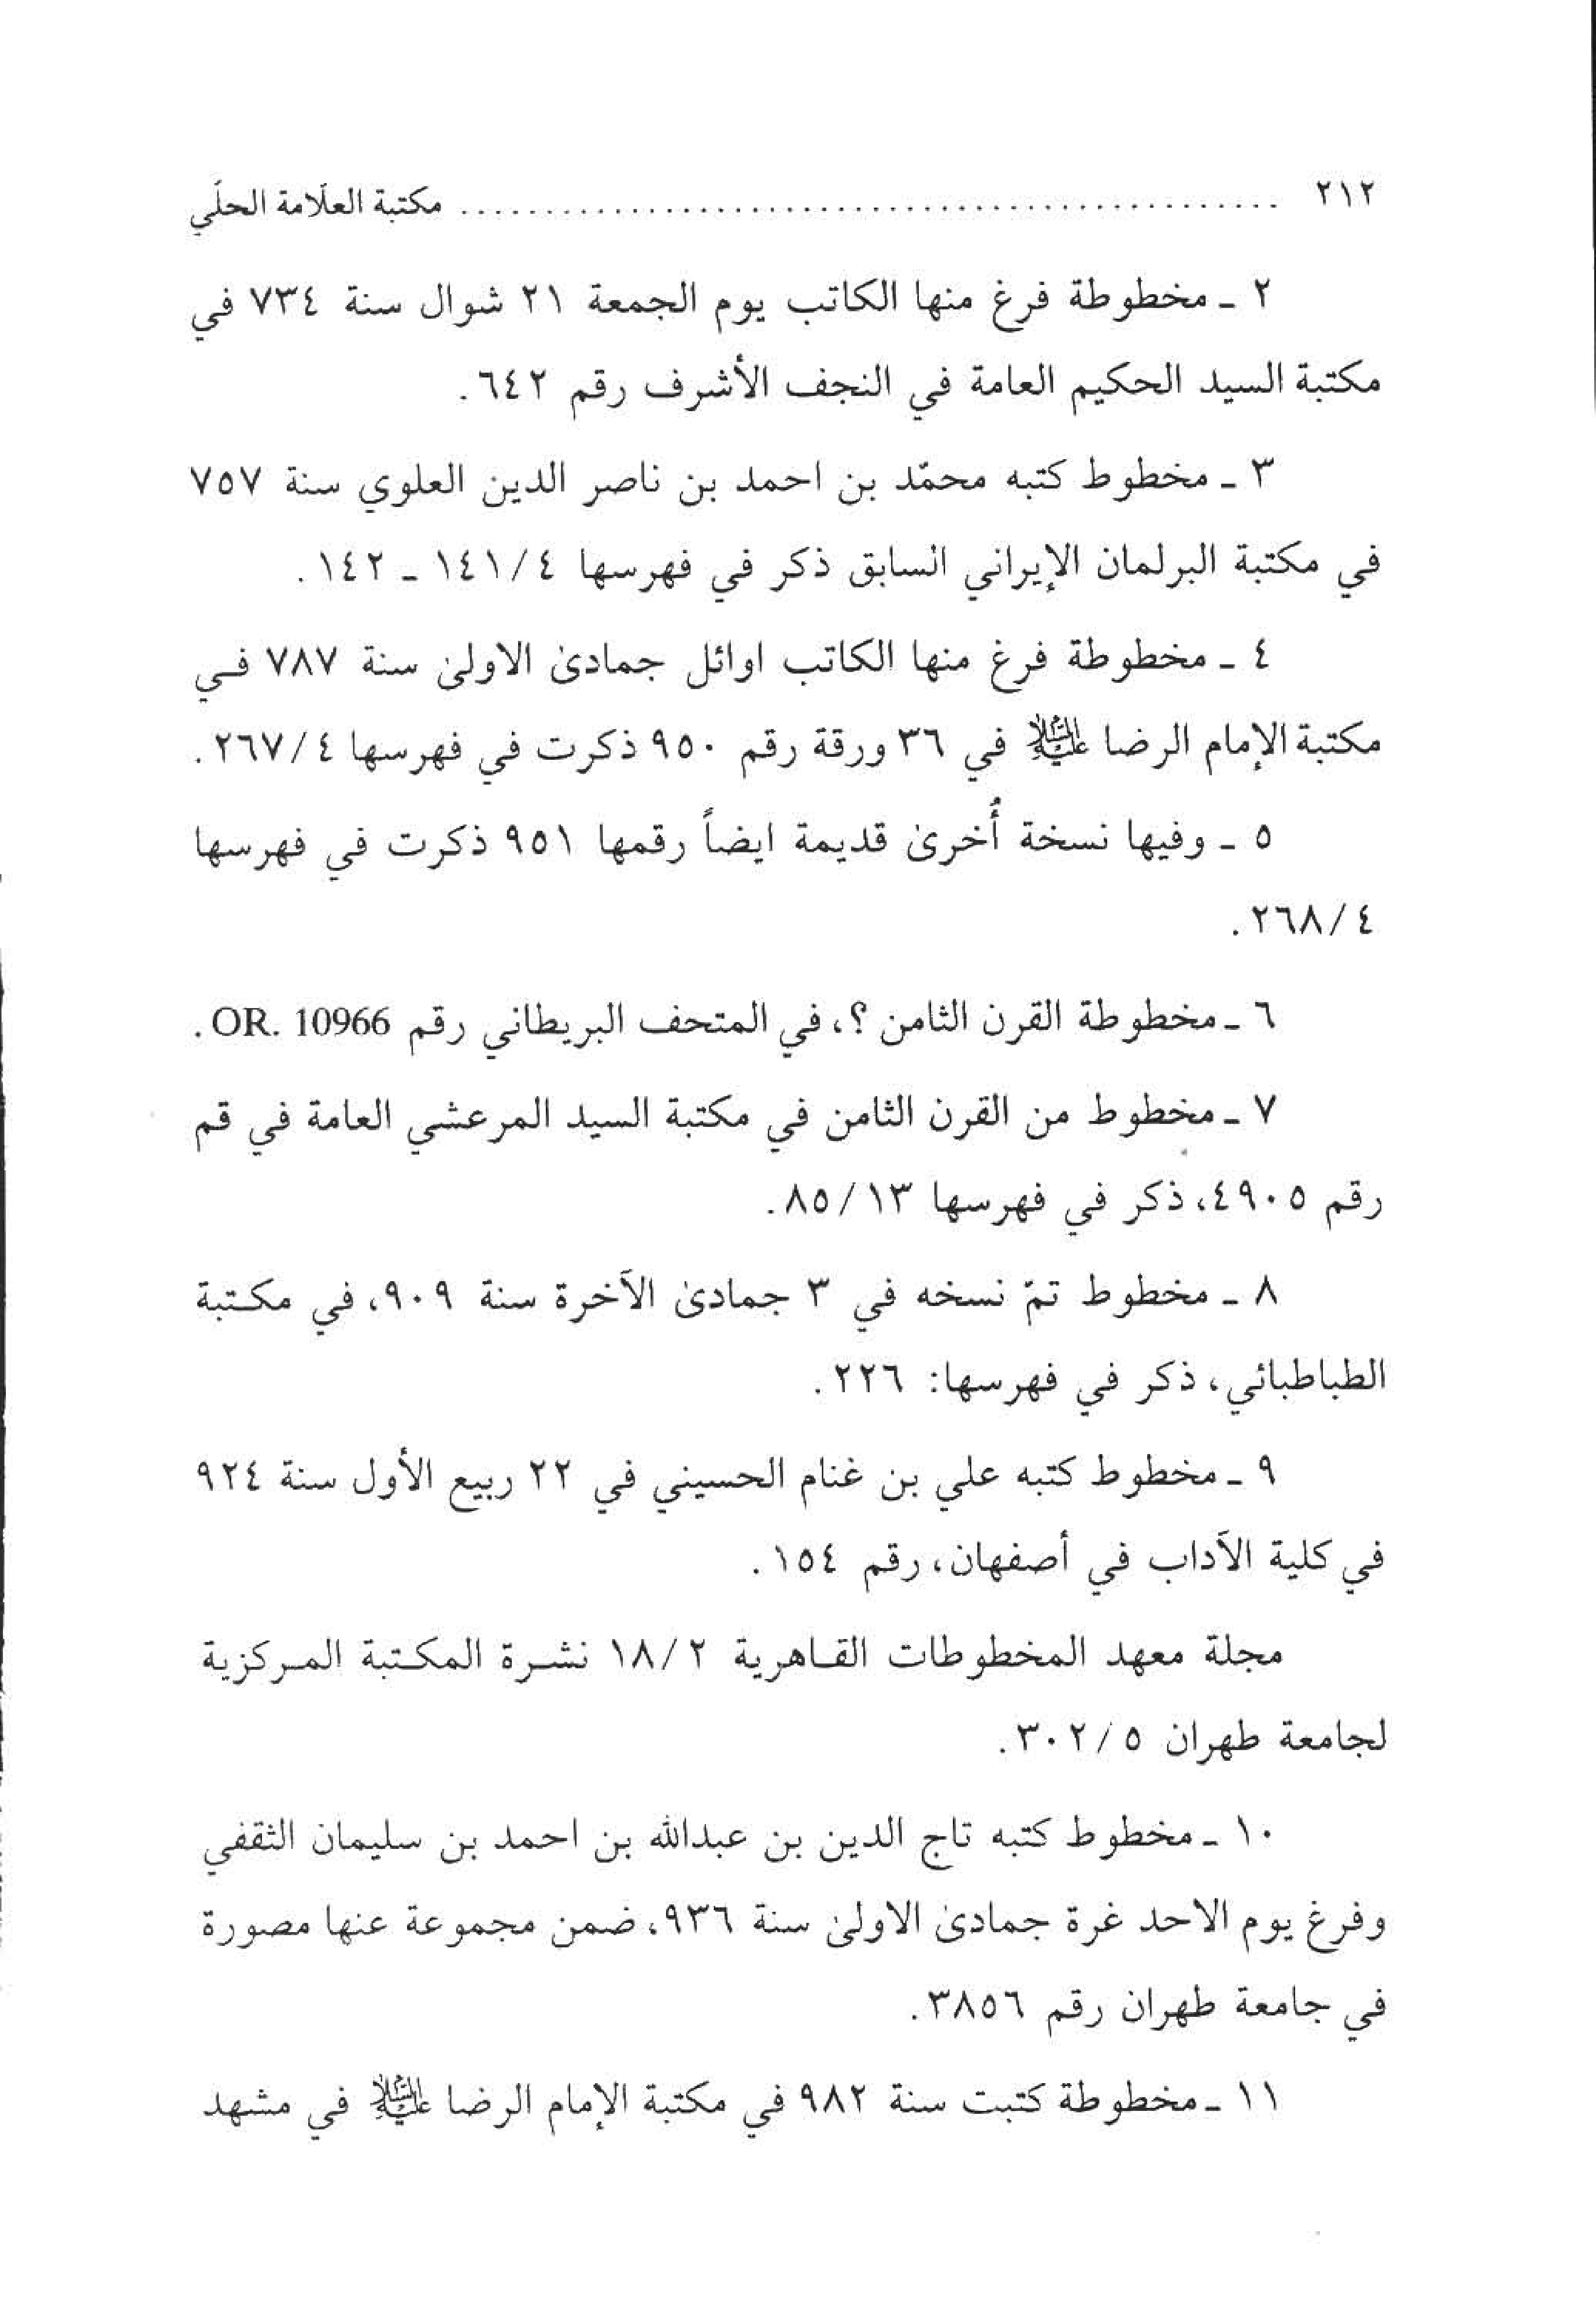 ٢١٢ .................................................. مكتبة العلّامة الحلّي
٢ ـ مخطوطة فرغ منها الكاتب يوم الجمعة ٢١ شوال سنة ٧٣٤ في
مكتبة السيد الحكيم العامة في النجف الأشرف رقم ٦٤٢.
٣ ـ مخطوط كتبه محمّد بن احمد بن ناصر الدين العلوي سنة ٧٥٧
في مكتبة البرلمان الإيراني السابق ذكر في فهرسها ٤/١٤١ ـ ١٤٢.
٤ ـ مخطوطة فرغ منها الكاتب اوائل جمادىٰ الاولىٰ سنة ٧٨٧ فـي
مكتبة الإمام الرضا عليه السلام في ٣٦ ورقة رقم ٩٥٠ ذكرت في فهرسها ٤/٢٦٧.
٥ ـ وفيها نسخة أُخرىٰ قديمة ايضاً رقمها ٩٥١ ذكرت في فهرسها
٤/٢٦٨.
٦ ـ مخطوطة القرن الثامن ؟، في المتحف البريطاني رقم OR. 10966.
٧ ـ مخطوط من القرن الثامن في مكتبة السيد المرعشي العامة في قم
رقم ٤٩٠٥، ذكر في فهرسها ١٣/٨٥.
٨ ـ مخطوط تمّ نسخه في ٣ جمادىٰ الآخرة سنة ٩٠٩، في مكـتبة
الطباطبائي، ذكر في فهرسها: ٢٢٦.
٩ ـ مخطوط كتبه علي بن غنام الحسيني في ٢٢ ربيع الأول سنة ٩٢٤
في كلية الآداب في أصفهان، رقم ١٥٤.
مجلة معهد المخطوطات القـاهرية ١٨/٢ نشـرة المكـتبة المـركزية
لجامعة طهران ٣٠٢/٥.
١٠ ـ مخطوط كتبه تاج الدين بن عبدالله بن احمد بن سليمان الثقفي
وفرغ يوم الاحد غرة جمادىٰ الاولىٰ سنة ٩٣٦، ضمن مجموعة عنها مصورة
في جامعة طهران رقم ٣٨٥٦.
١١ ـ مخطوطة كتبت سنة ٩٨٢ في مكتبة الإمام الرضا عليه السلام في مشهد